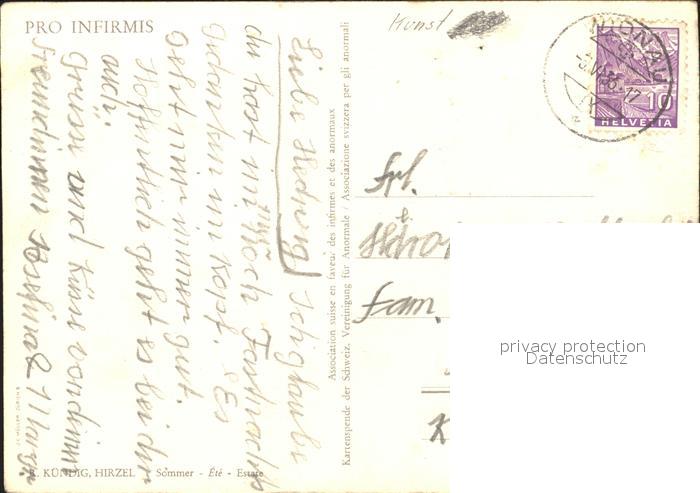 PRO INFIRMIS
Kunst
Liebe Hedwig Ich glaube
du hast immer noch Fastnachts
gedanken im Kopf. Es
geht mir immer gut.
Hoffentlich geht es bei dir
auch.
Grüsse und Küsse von deinen
Freundinnen Josefina &
10
HELVETIA
Association suisse en faveur des infirmes et des anormaux
Kartenspende der Schweiz. Vereinigung für Anormale / Associazione svizzera per gli anormali
Frl.
Fam.
K
privacy protection
Datenschutz
R. KÜNDIG, HIRZEL Sommer - Été - Estate